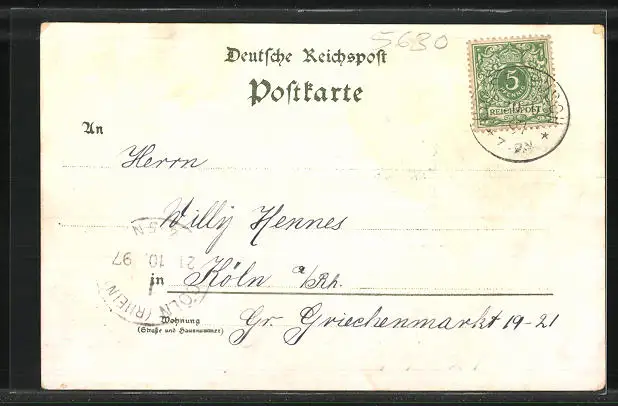 5630
Deutsche Reichspost
Postkarte
5
REICHSPOST
An
Herrn
Willy Hennes
in Köln a/Rh.
21 10. 97
CÖLN (RHEIN)
Wohnung
(Straße und Hausnummer)
Gr. Griechenmarkt 19-21